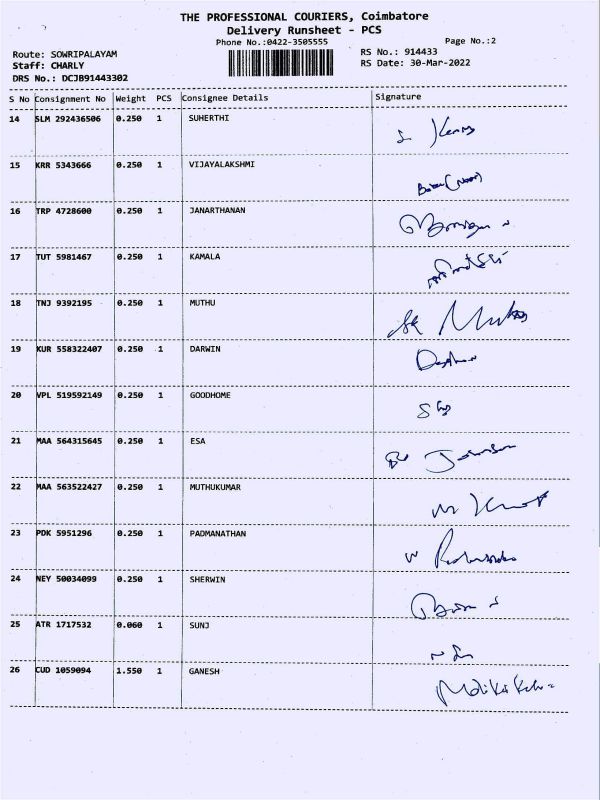 THE PROFESSIONAL COURIERS, Coimbatore
Delivery Runsheet - PCS
Phone No.:0422-3505555 Page No.:2
Route: SOWRIPALAYAM RS No.: 914433
Staff: CHARLY RS Date: 30-Mar-2022
DRS No.: DCJB91443302
S No Consignment No Weight PCS Consignee Details Signature
14 SLM 292436506 0.250 1 SUHERTHI
15 KRR 5343666 0.250 1 VIJAYALAKSHMI
16 TRP 4728600 0.250 1 JANARTHANAN
17 TUT 5981467 0.250 1 KAMALA
18 TNJ 9392195 0.250 1 MUTHU
19 KUR 558322407 0.250 1 DARWIN
20 VPL 519592149 0.250 1 GOODHOME
21 MAA 564315645 0.250 1 ESA
22 MAA 563522427 0.250 1 MUTHUKUMAR
23 PDK 5951296 0.250 1 PADMANATHAN
24 NEY 50034099 0.250 1 SHERWIN
25 ATR 1717532 0.060 1 SUNJ
26 CUD 1059094 1.550 1 GANESH